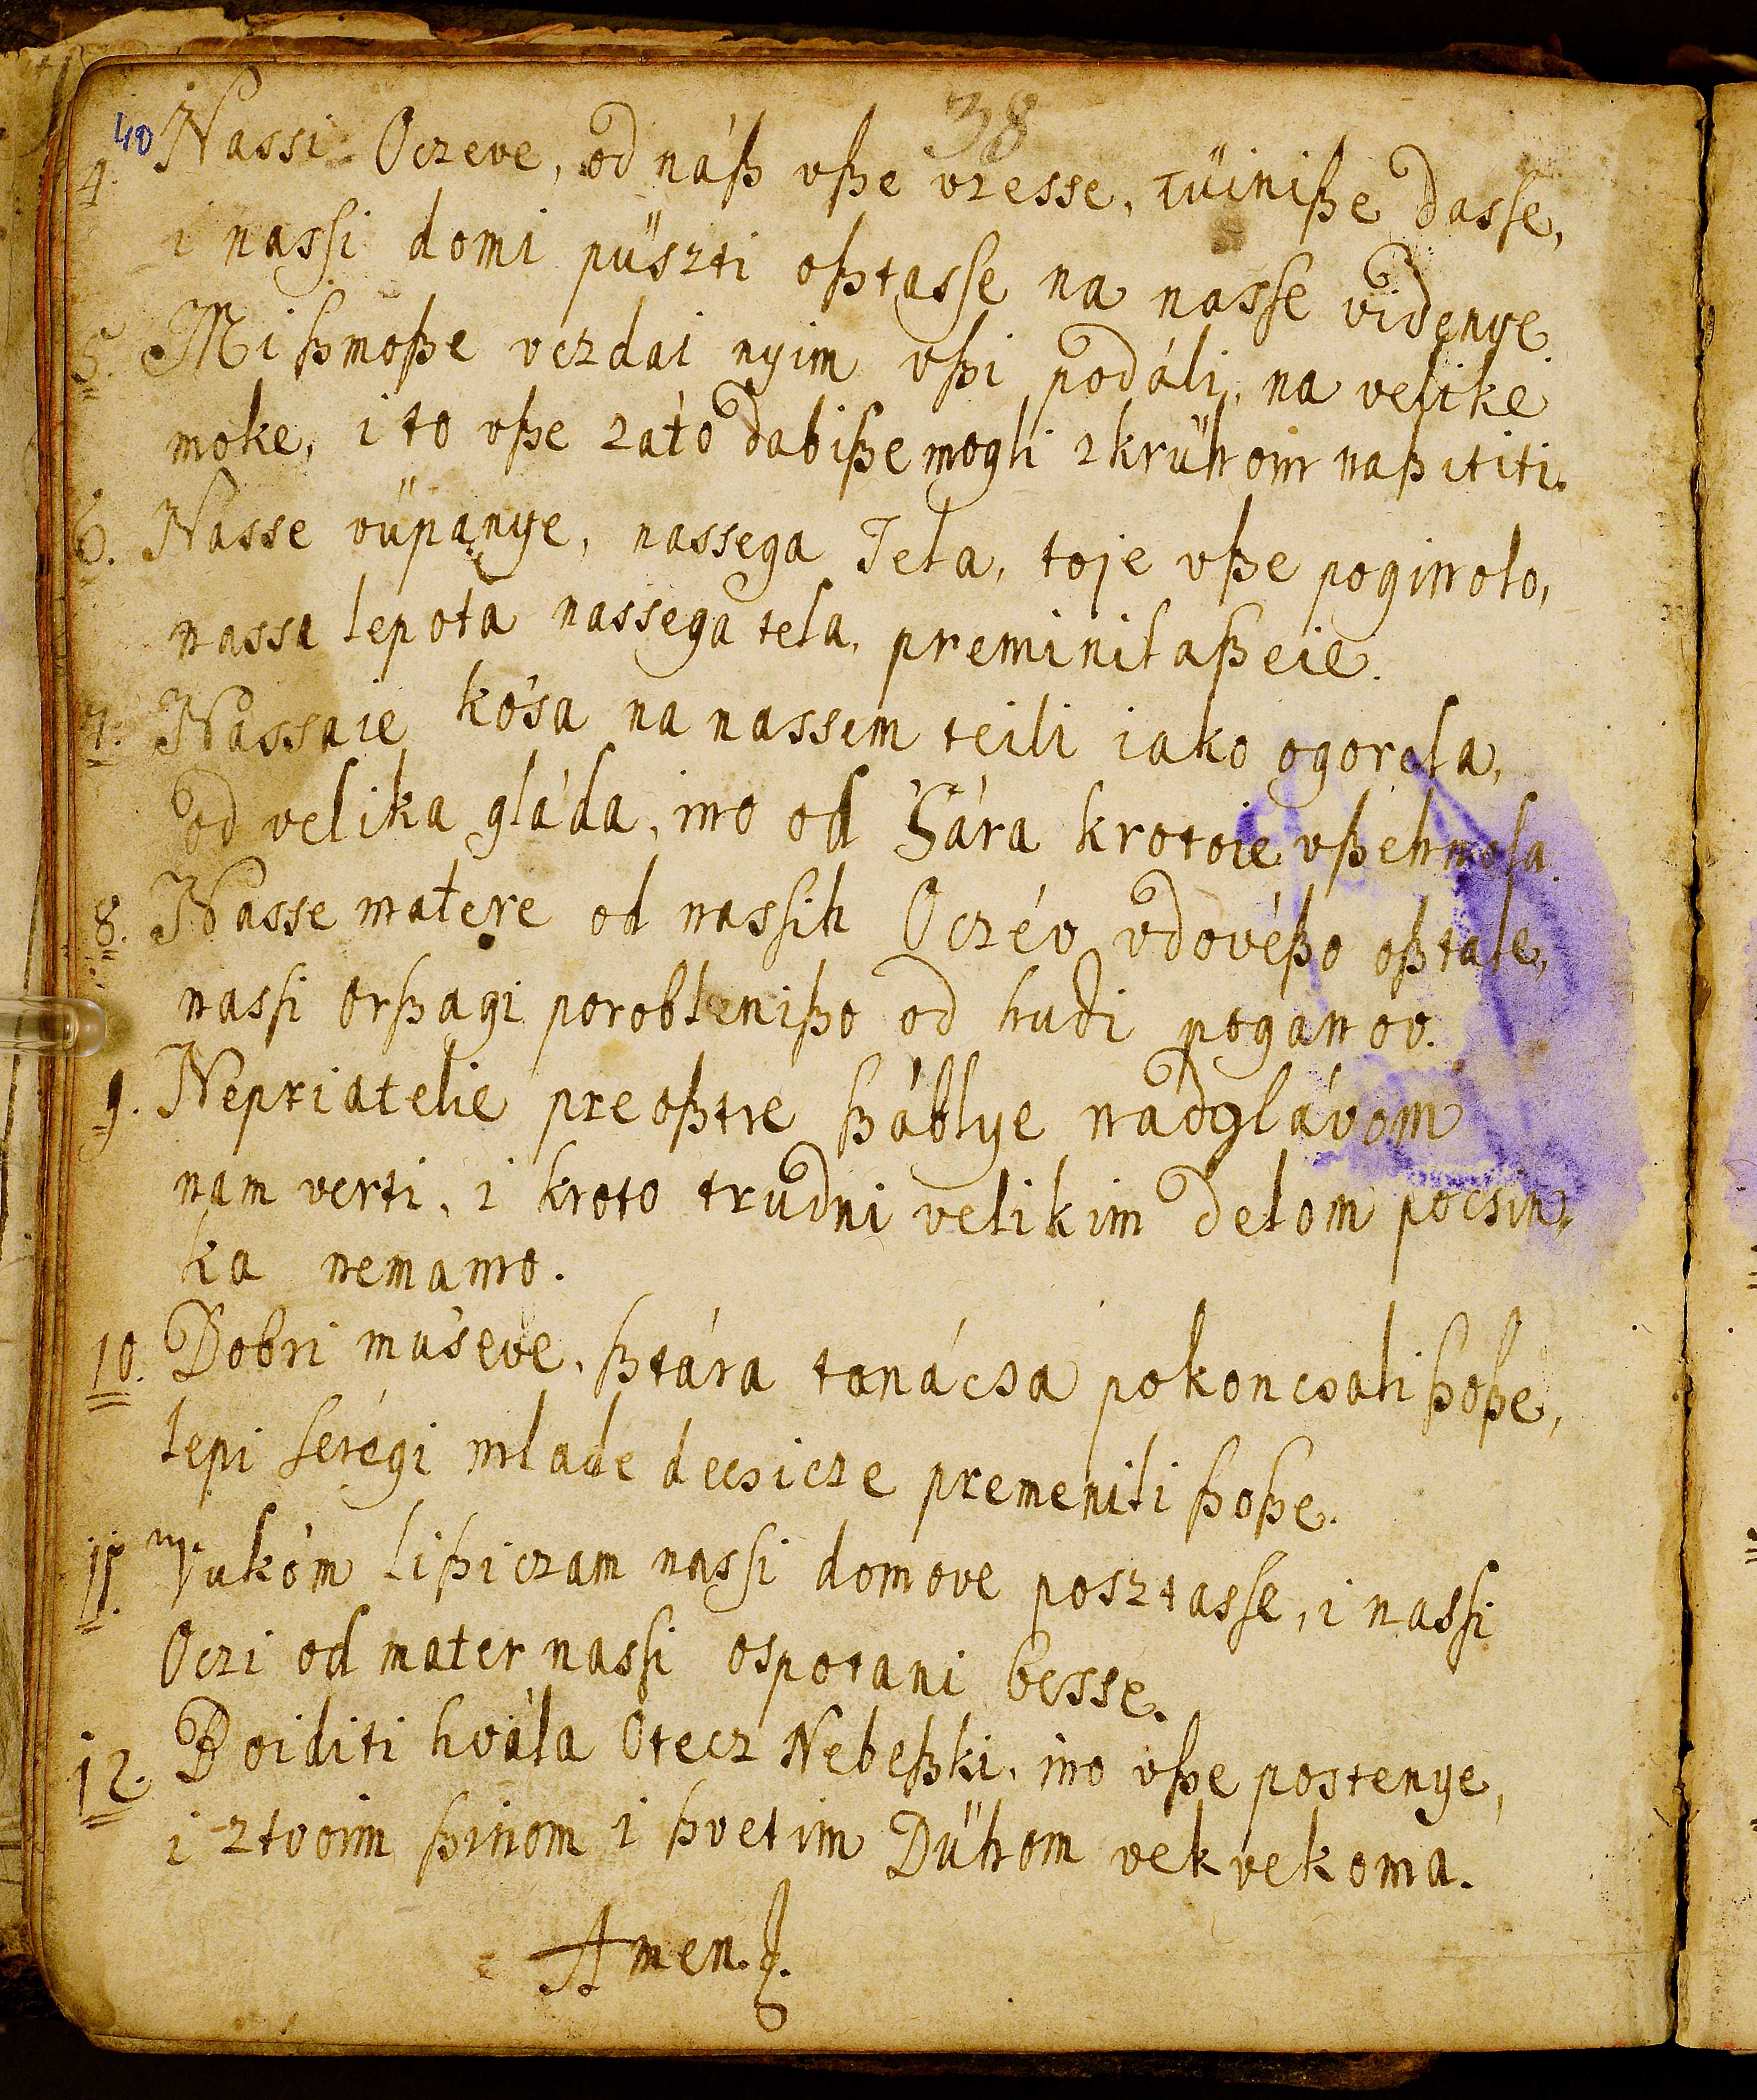 40 38
4. Nassi Oczeve, od náß vße vzesse, tüiniße dasse,
i nassi domi püszti oßtasse na nasse videnye.
5. Mi ßmoße vczdai nyim vßi podáli, na velike
moke, i to vße zató dabiße mogli zkrühom naßititi.
6. Nasse vüpanye, nassega Tela, toje vße poginolo,
nassa lepota nassega tela, preminilaßeie.
7. Nassaie kósa na nassem teili iako ogorela,
od velika gláda, ino od Sára krotoie vßehmola.
8. Nasse matere od nassih Oczév vdovéßo oßtale,
nassi orßagi poroblenißo od hudi poganov.
9. Nepriatelie preoßtre ßáblye nadglávom
nam verti, i kroto trudni velikim delom pocsin,
ka nemamo.
10. Dobri museve, ßtára tanácsa pokoncsali ßoße,
lepi serégi mlade decsicze premenili ßoße.
11. Vukóm lißiczam nassi domove posztasse, i nassi
Oczi od mater nassi ospotani besse.
12. Boiditi hvála Otecz Nebeßki, ino vße postenye,
i ztvoim ßinom i ßvetim Dühom vekvekoma.
Amen.